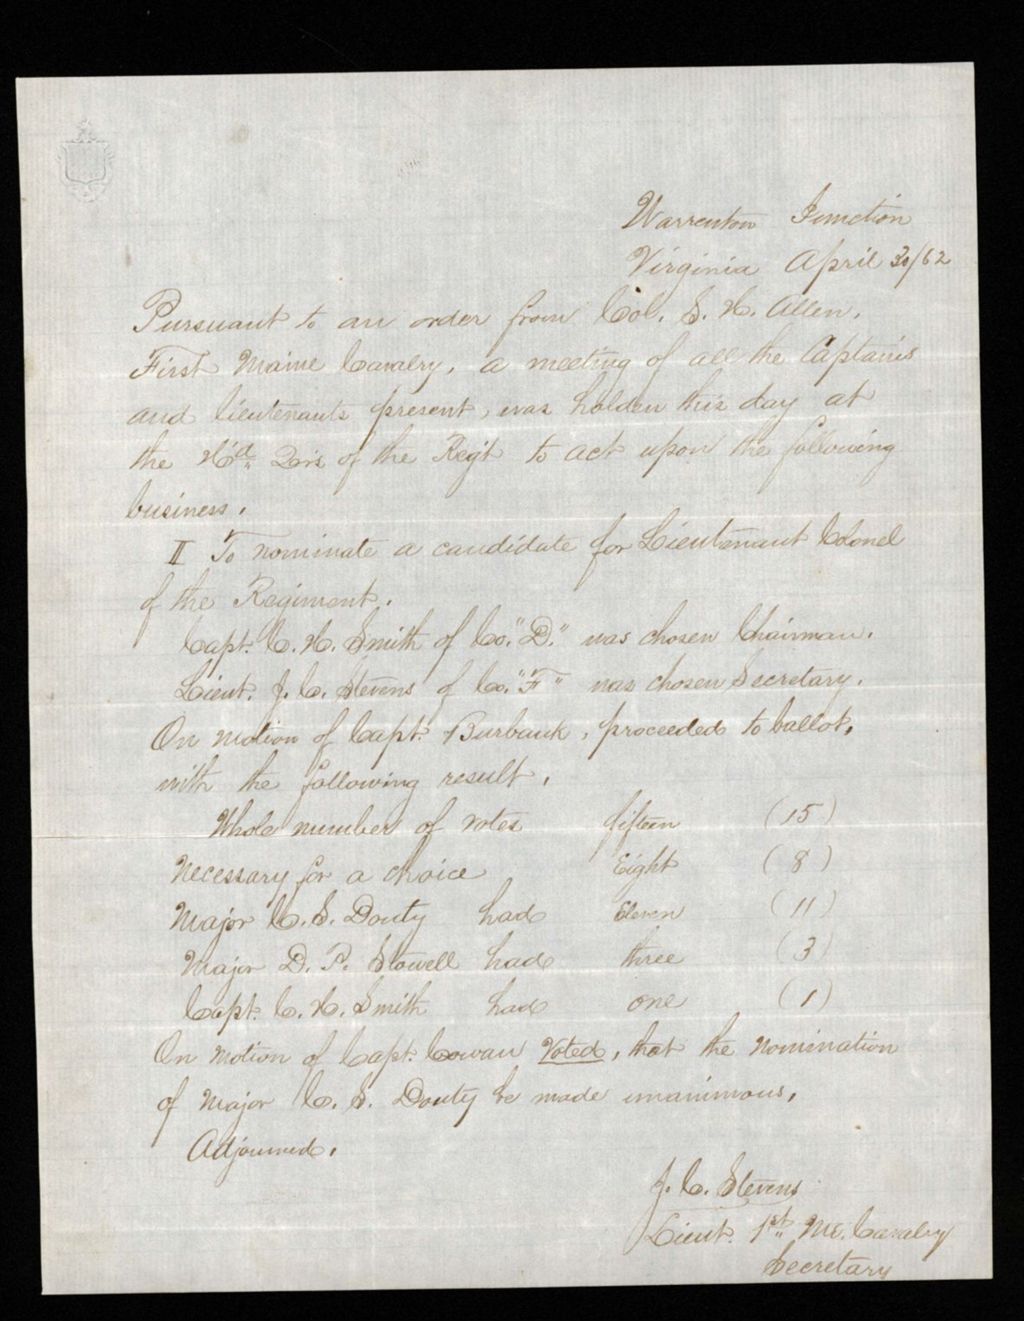 Warrenton Junction
Virginia April 30/62
Pursuant to an order from Col. S. H. Allen.
First Maine Cavalry, a meeting of all the Captains
and lieutenants present, was holden this day at
the Hd. Qrs of the Regt to act upon the following
business.
II To nominate a candidate for Lieutenant Colonel
of the Regiment.
Capt. C. H. Smith of Co. "D." was chosen Chairman.
Lieut. J. C. Stevens of Co. "F" was chosen Secretary.
On motion of Capt. Burbank, proceeded to ballot,
with the following result.
Whole number of votes fifteen (15)
Necessary for a choice Eight (8)
Major C. S. Douty had Eleven (11)
Major D. P. Stowell had three (3)
Capt. C. H. Smith had one (1)
On motion of Capt. Cowan Voted, that the nomination
of Major C. S. Douty be made unanimous.
Adjourned.
J. C. Stevens
Lieut. 1st Me. Cavalry
Secretary